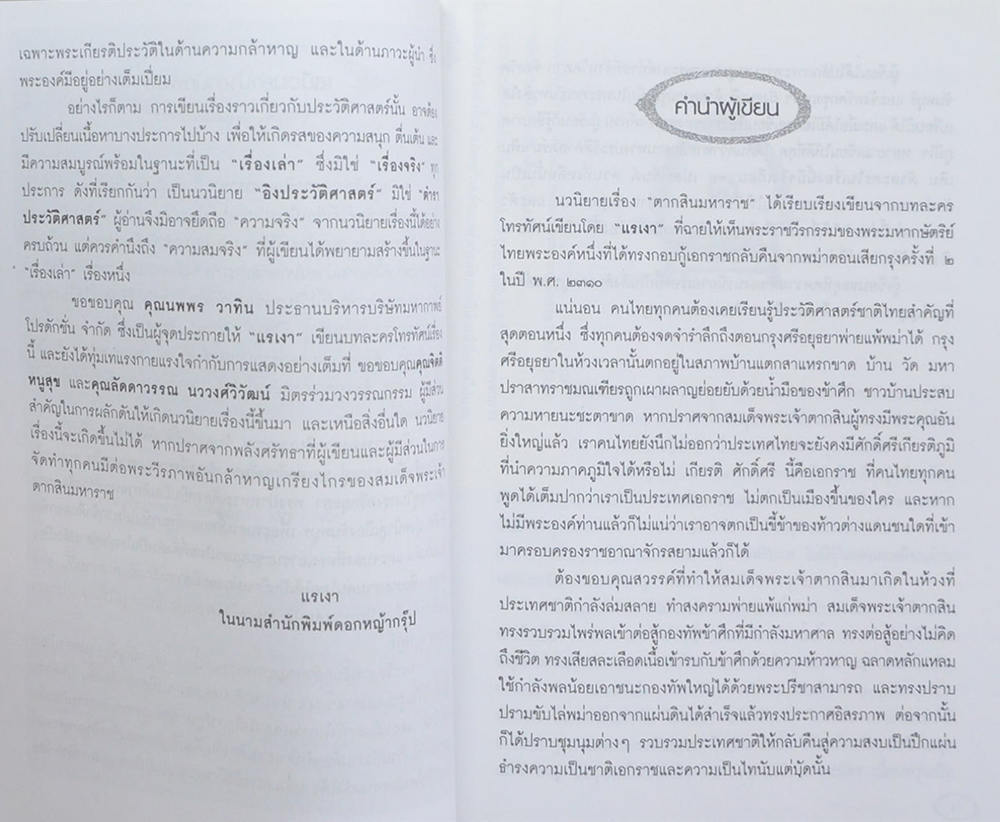 เฉพาะพระเกียรติประวัติในด้านความกล้าหาญ และในด้านภาวะผู้นำ ซึ่ง
พระองค์มีอยู่อย่างเต็มเปี่ยม
อย่างไรก็ตาม การเขียนเรื่องราวเกี่ยวกับประวัติศาสตร์นั้น อาจต้อง
ปรับเปลี่ยนเนื้อหาบางประการไปบ้าง เพื่อให้เกิดรสของความสนุก ตื่นเต้น และ
มีความสมบูรณ์พร้อมในฐานะที่เป็น “เรื่องเล่า” ซึ่งมิใช่ “เรื่องจริง” ทุก
ประการ ดังที่เรียกกันว่า เป็นนวนิยาย “อิงประวัติศาสตร์” มิใช่ “ตำรา
ประวัติศาสตร์” ผู้อ่านจึงมิอาจยึดถือ “ความจริง” จากนวนิยายเรื่องนี้ได้อย่าง
ครบถ้วน แต่ควรคำนึงถึง “ความสมจริง” ที่ผู้เขียนได้พยายามสร้างขึ้นในฐานะ
“เรื่องเล่า” เรื่องหนึ่ง
ขอขอบคุณ คุณนพพร วาทิน ประธานบริหารบริษัทมหากาพย์
โปรดักชั่น จำกัด ซึ่งเป็นผู้จุดประกายให้ “แรเงา” เขียนบทละครโทรทัศน์เรื่อง
นี้ และยังได้ทุ่มเทแรงกายแรงใจกำกับการแสดงอย่างเต็มที่ ขอขอบคุณคุณจิตติ
หนูสุข และคุณลัดดาวรรณ นววงศ์วิวัฒน์ มิตรร่วมวงวรรณกรรม ผู้มีส่วน
สำคัญในการผลักดันให้เกิดนวนิยายเรื่องนี้ขึ้นมา และเหนือสิ่งอื่นใด นวนิยาย
เรื่องนี้จะเกิดขึ้นไม่ได้ หากปราศจากพลังศรัทธาที่ผู้เขียนและผู้มีส่วนในการ
จัดทำทุกคนมีต่อพระวีรภาพอันกล้าหาญเกรียงไกรของสมเด็จพระเจ้า
ตากสินมหาราช
แรเงา
ในนามสำนักพิมพ์ดอกหญ้ากรุ๊ป
คำนำผู้เขียน
นวนิยายเรื่อง “ตากสินมหาราช” ได้เรียบเรียงเขียนจากบทละคร
โทรทัศน์เขียนโดย “แรเงา” ที่ฉายให้เห็นพระราชวีรกรรมของพระมหากษัตริย์
ไทยพระองค์หนึ่งที่ได้ทรงกอบกู้เอกราชกลับคืนจากพม่าตอนเสียกรุงครั้งที่ ๒
ในปี พ.ศ. ๒๓๑๐
แน่นอน คนไทยทุกคนต้องเคยเรียนรู้ประวัติศาสตร์ชาติไทยสำคัญที่
สุดตอนหนึ่ง ซึ่งทุกคนต้องจดจำรำลึกถึงตอนกรุงศรีอยุธยาพ่ายแพ้พม่าได้ กรุง
ศรีอยุธยาในห้วงเวลานั้นตกอยู่ในสภาพบ้านแตกสาแหรกขาด บ้าน วัด มหา
ปราสาทราชมณเฑียรถูกเผาผลาญย่อยยับด้วยน้ำมือของข้าศึก ชาวบ้านประสบ
ความหายนะชะตาขาด หากปราศจากสมเด็จพระเจ้าตากสินผู้ทรงมีพระคุณอัน
ยิ่งใหญ่แล้ว เราคนไทยยังนึกไม่ออกว่าประเทศไทยจะยังคงมีศักดิ์ศรีเกียรติภูมิ
ที่นำความภาคภูมิใจได้หรือไม่ เกียรติ ศักดิ์ศรี นี้คือเอกราช ที่คนไทยทุกคน
พูดได้เต็มปากว่าเราเป็นประเทศเอกราช ไม่ตกเป็นเมืองขึ้นของใคร และหาก
ไม่มีพระองค์ท่านแล้วก็ไม่แน่ว่าเราอาจตกเป็นขี้ข้าของท้าวต่างแดนชนใดที่เข้า
มาครอบครองราชอาณาจักรสยามแล้วก็ได้
ต้องขอบคุณสวรรค์ที่ทำให้สมเด็จพระเจ้าตากสินมาเกิดในห้วงที่
ประเทศชาติกำลังล่มสลาย ทำสงครามพ่ายแพ้แก่พม่า สมเด็จพระเจ้าตากสิน
ทรงรวบรวมไพร่พลเข้าต่อสู้กองทัพข้าศึกที่มีกำลังมหาศาล ทรงต่อสู้อย่างไม่คิด
ถึงชีวิต ทรงเสียสละเลือดเนื้อเข้ารบกับข้าศึกด้วยความห้าวหาญ ฉลาดหลักแหลม
ใช้กำลังพลน้อยเอาชนะกองทัพใหญ่ได้ด้วยพระปรีชาสามารถ และทรงปราบ
ปรามขับไล่พม่าออกจากแผ่นดินได้สำเร็จแล้วทรงประกาศอิสรภาพ ต่อจากนั้น
ก็ได้ปราบชุมนุมต่างๆ รวบรวมประเทศชาติให้กลับคืนสู่ความสงบเป็นปึกแผ่น
ธำรงความเป็นชาติเอกราชและความเป็นไทนับแต่บัดนั้น